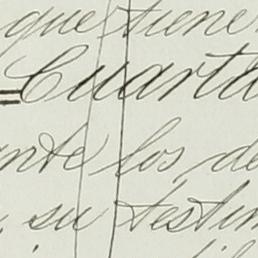 que tiene
Cuarta
ante los de
su testim